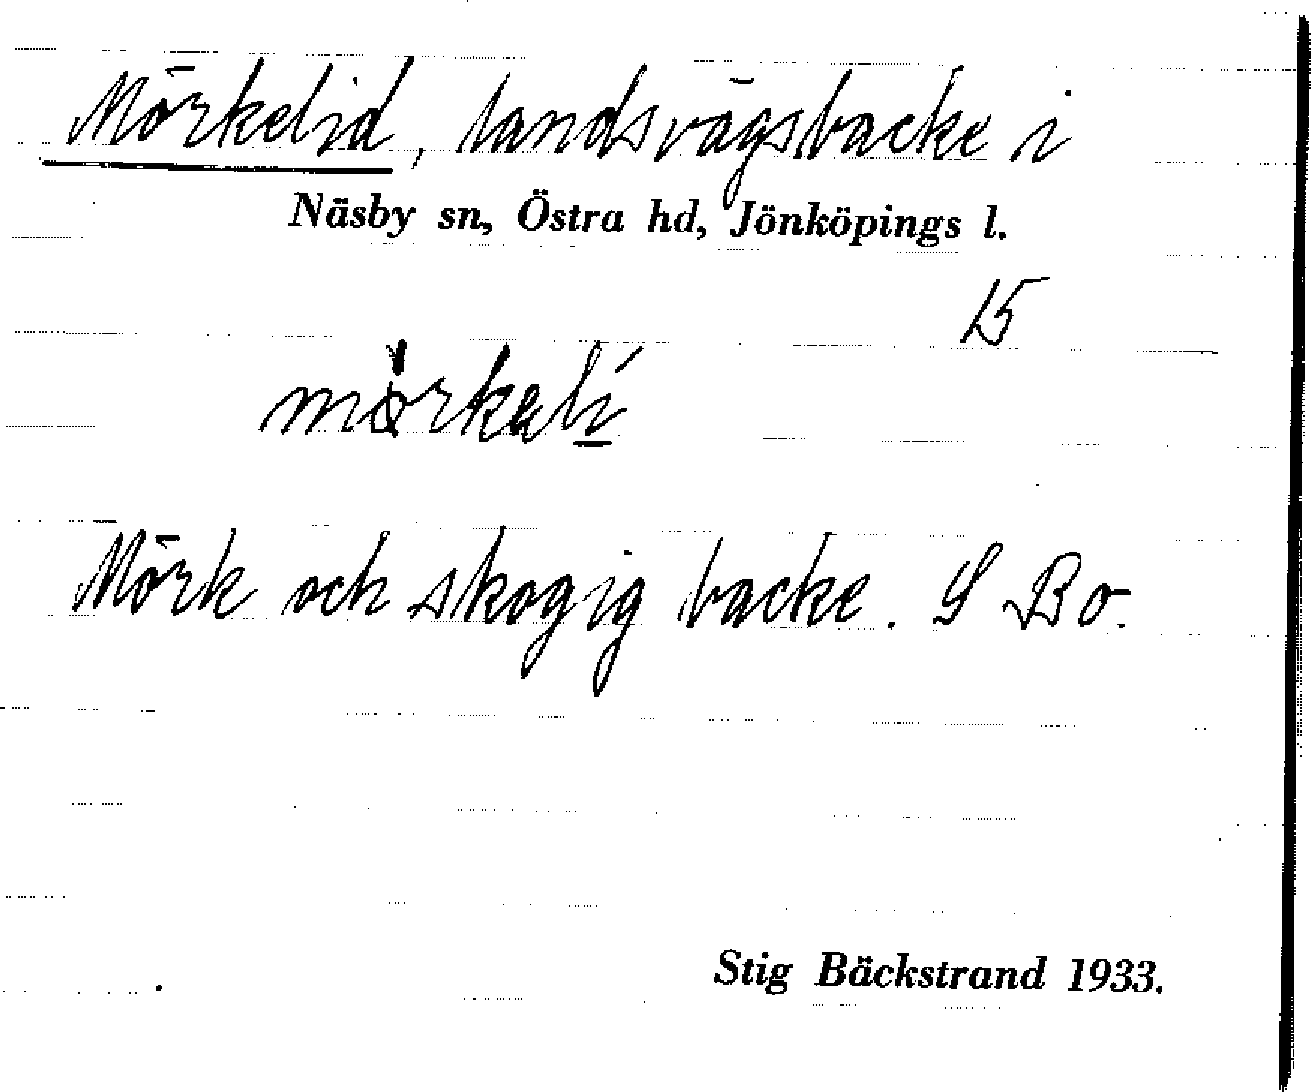 Mörkelid, landsvägsbacke i
Näsby sn, Östra hd, Jönköpings l.
15
Mörk och skogig backe. S Bo.
Stig Bäckstrand 1933.